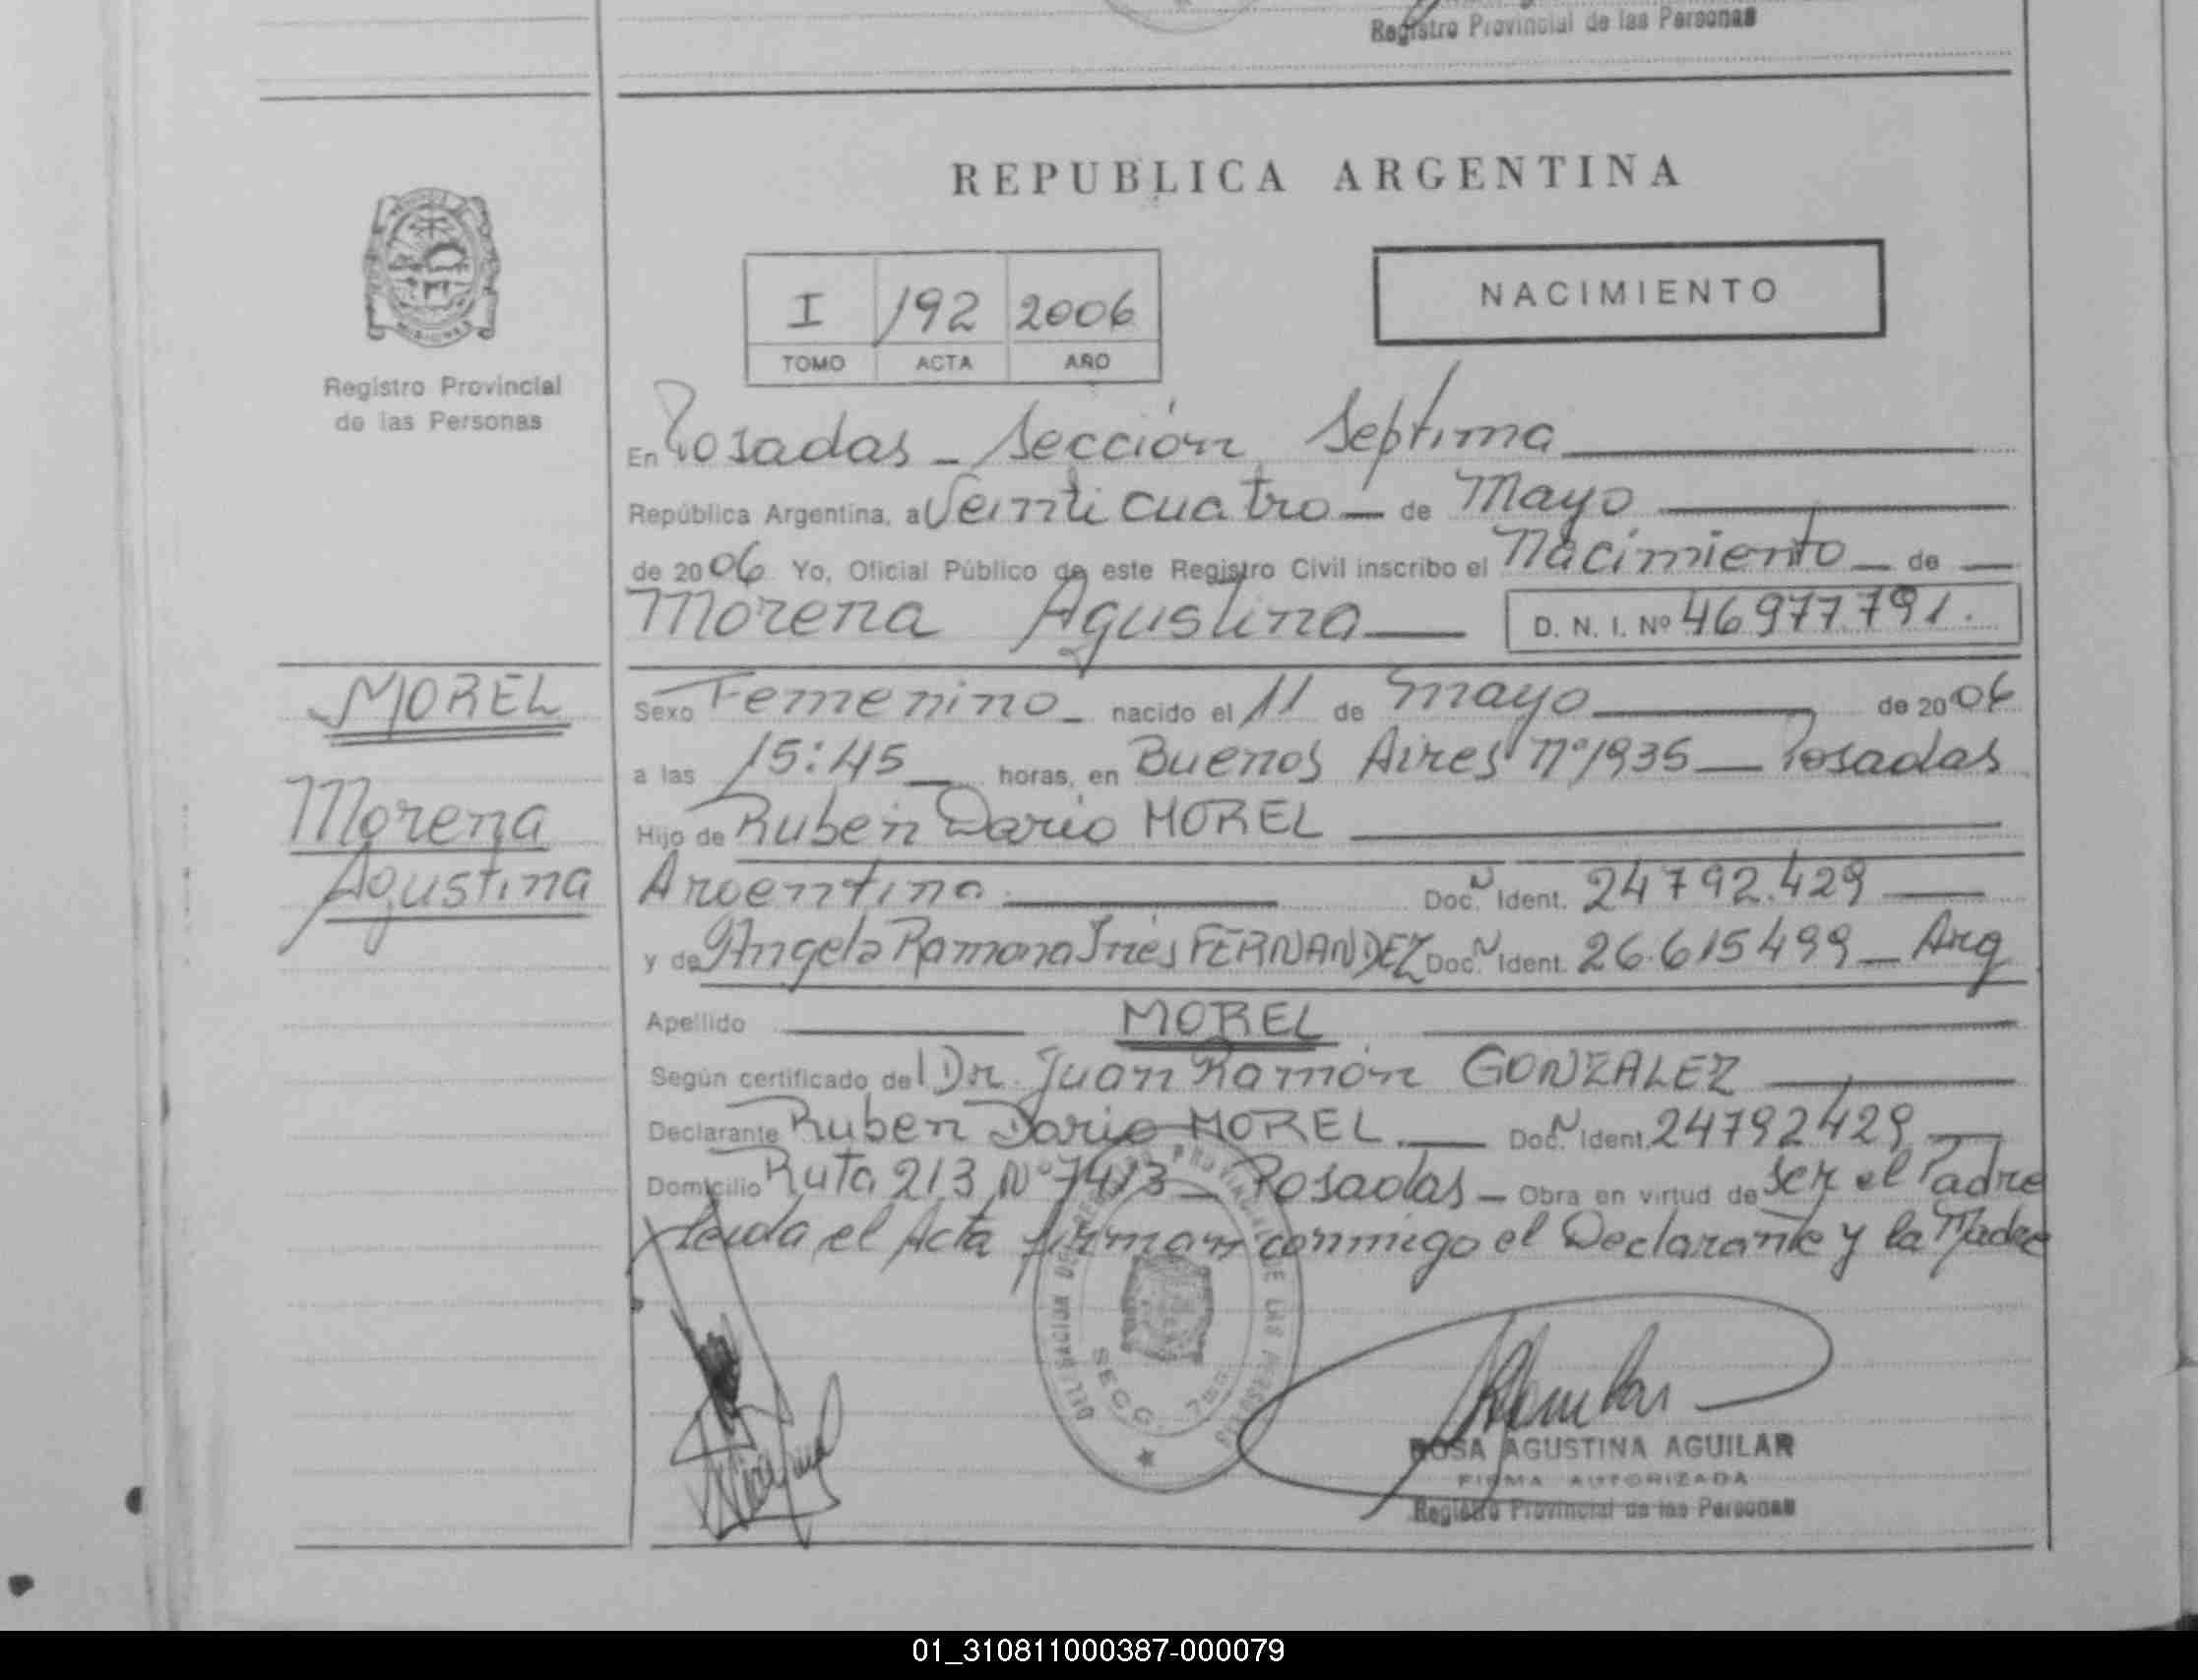 Registro Provincial de las Personas
REPUBLICA ARGENTINA
I 192 2006
TOMO ACTA AÑO
NACIMIENTO
Registro Provincial
de las Personas
En Posadas - Sección Septima
República Argentina, a Veinticuatro de Mayo
de 2006 Yo, Oficial Público de este Registro Civil inscribo el Nacimiento de
Morena Agustina D. N. I. Nº 46977791.
MOREL
Morena
Agustina
Sexo Femenino nacido el 11 de Mayo de 2006
a las 15:45 horas, en Buenos Aires nº 1935 - Posadas
Hijo de Ruben Dario MOREL
Argentino Doc. N Ident. 24792.429
y de Angela Ramona Inés FERNANDEZ Doc. N Ident. 26.615499 - Arg
Apellido MOREL
Según certificado del Dr. Juan Ramón GONZALEZ
Declarante Ruben Dario MOREL Doc. N Ident. 24792429
Domicilio Ruta 213 Nº 7413 - Posadas - Obra en virtud de ser el Padre
Leida el Acta firman conmigo el Declarante y la Madre
DELEGACION DEL REGISTRO PROVINCIAL DE LAS PERSONAS
SECC. 7ma
ROSA AGUSTINA AGUILAR
FIRMA AUTORIZADA
Registro Provincial de las Personas
01_310811000387-000079